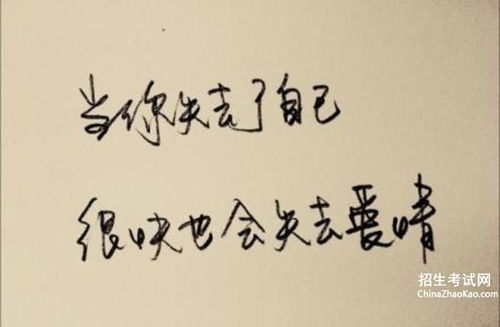 当你失去了自己
很快也会失去爱情
招生考试网
ChinaZhaoKao.com